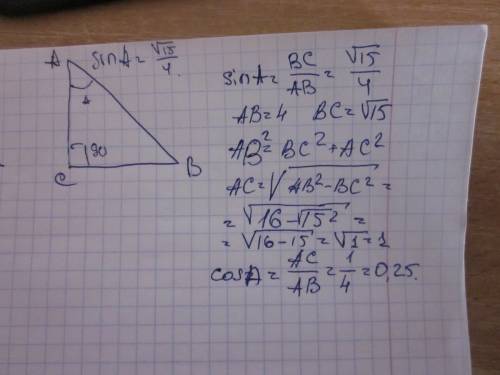 A sinA = √15/4.
A
90
C B
sinA = BC/AB = √15/4
AB=4 BC=√15
AB² = BC² + AC²
AC = √(AB² - BC²) =
= √(16 - √15²) =
= √(16-15) = √1 = 1
cosA = AC/AB = 1/4 = 0,25.